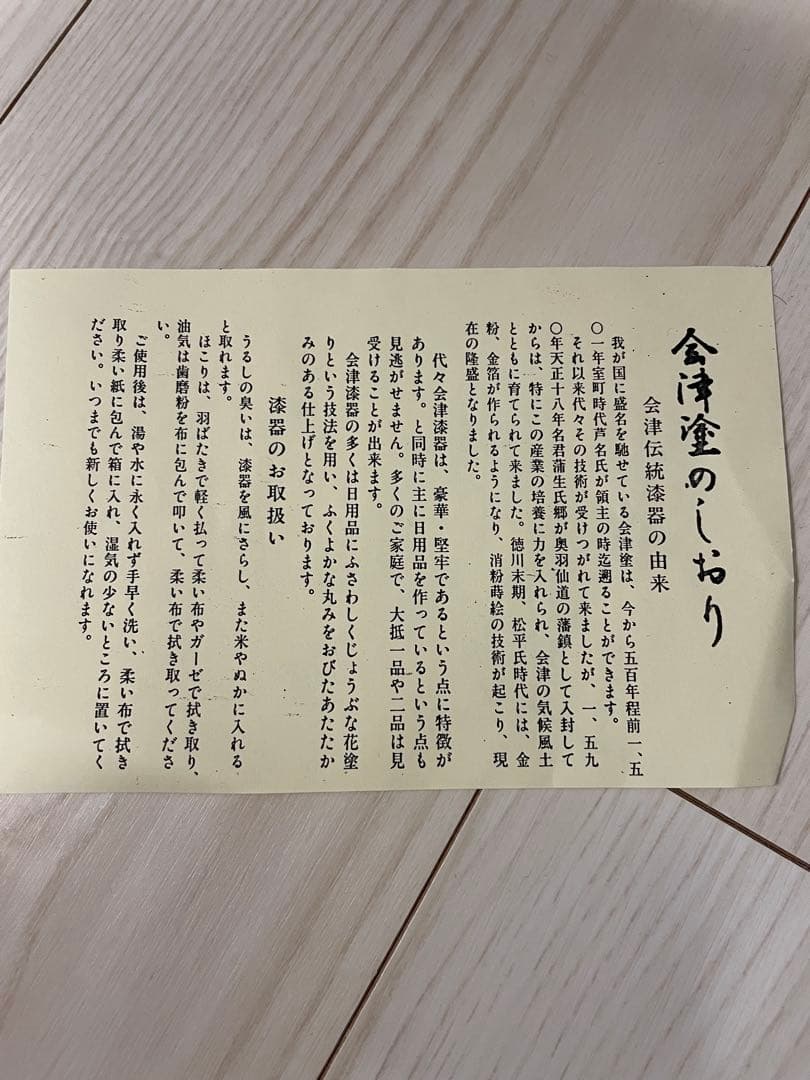 会津塗のしおり
会津伝統漆器の由来
我が国に盛名を馳せている会津塗は、今から五百年程前一、五
〇一年室町時代芦名氏が領主の時迄遡ることができます。
それ以来代々その技術が受けつがれて来ましたが、一、五九
〇年天正十八年名君蒲生氏郷が奥羽仙道の藩鎮として入封して
からは、特にこの産業の培養に力を入れられ、会津の気候風土
とともに育てられて来ました。徳川末期、松平氏時代には、金
粉、金箔が作られるようになり、消粉蒔絵の技術が起こり、現
在の隆盛となりました。
代々会津漆器は、豪華・堅牢であるという点に特徴が
あります。と同時に主に日用品を作っているという点も
見逃がせません。多くのご家庭で、大抵一品や二品は見
受けることが出来ます。
会津漆器の多くは日用品にふさわしくじょうぶな花塗
りという技法を用い、ふくよかな丸みをおびたあたたか
みのある仕上げとなっております。
漆器のお取扱い
うるしの臭いは、漆器を風にさらし、また米やぬかに入れる
と取れます。
ほこりは、羽ばたきで軽く払って柔い布やガーゼで拭き取り、
油気は歯磨粉を布に包んで叩いて、柔い布で拭き取ってくださ
い。
ご使用後は、湯や水に永く入れず手早く洗い、柔い布で拭き
取り柔い紙に包んで箱に入れ、湿気の少ないところに置いてく
ださい。いつまでも新しくお使いになれます。